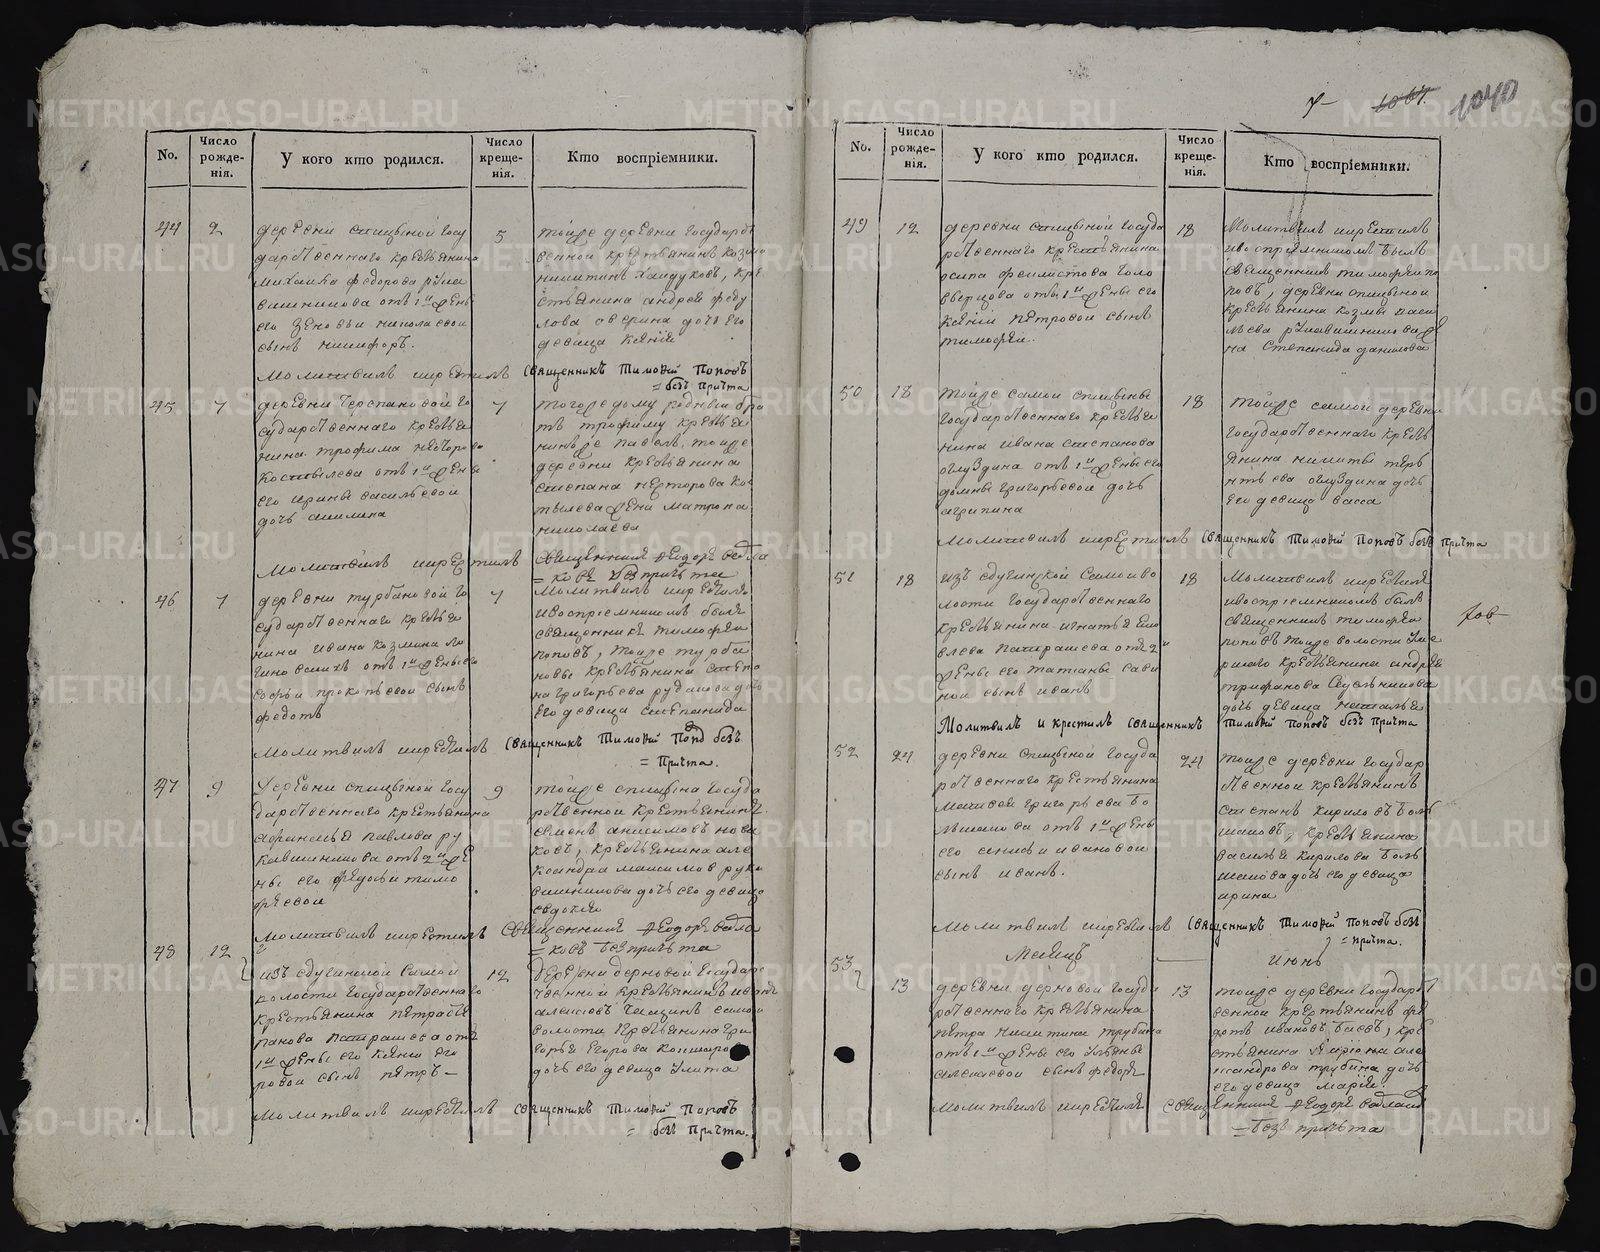 No.
Число рожде-нія.
У кого кто родился.
Число креще-нія.
Кто воспріемники.
44
2
деревни спицыной госу
дарственнаго крестьянина
михаила федорова рука
вишникова отъ 1й жены
его зеновьи николаевой
сынъ никифоръ.
5
тойже деревни государст
венной крестьянинъ козма
никитинъ хайдуковъ, кре
стьянина андрея феду
лова оверина дочь его
девица ксения
молитвилъ икрестилъ священникъ Тимофей Поповъ
= безъ причта
45
7
деревни черепановой го
сударственнаго крестья
нина трофима несторова
костылева отъ 1й жены
его ирины васильевой
дочь акилина
7
тогоже дому родный бра
тъ трофиму крестья
нинъ же павелъ, тойже
деревни крестьянина
степана несторова ко
тылева жена матрона
николаева
Молитвилъ икрестилъ священникъ Феодоръ
= безъ причьта
46
7
деревни турбановой го
сударственнаго крестья
нина ивана козмина ло
гиновских отъ 1й жены его
софьи прокопьевой сынъ
федотъ
7
Молитвилъ икрестилъ
ивоспріемникомъ былъ
священникъ тимофей
поповъ, тойже турба
новы крестьянина степа
на григорьева рудакова дочь
его девица степанида
Молитвилъ икрестилъ священникъ Тимофей Попов безъ
= Причта.
47
9
Деревни спицыной госу
дарственнаго крестьянина
афонасья павлова ру
кавишникова отъ 2й же
ны его федосьи тимо
феевой
9
тойже спицына госуда
рственной крестьянинъ
семенъ анисимовъ нова
ковъ, крестьянина але
ксандра максимов рука
вишникова дочь его девица
евдокия
Молитвилъ икрестилъ Священникъ Феодоръ
= безъ причьта
48
12
изъ
волости государственнаго
крестьянина петра сте
панова патрашева отъ
1й жены его ксении его
ровой сынъ петръ —
12
Деревни дерновой государс
твенной крестьянинъ иванъ
алексеевъ самой
волости крестьянина гри
горья егорова
дочь его девица улита
молитвилъ икрестилъ священникъ Тимофей Поповъ
= безъ Причта.
7
1067.
1040
No.
Число рожде-нія.
У кого кто родился.
Число креще-нія.
Кто воспріемники.
49
12
деревни спицыной госуда
рственнаго крестьянина
осипа феклистова голо
вверцова отъ 1й жены его
ксении петровой сынъ
тимофей.
18
Молитвилъ икрестилъ
ивоспріемникомъ былъ
священникъ тимофей по
повъ, деревни спицыной
крестьянина козмы васи
льева рукавишникова же
на степанида данилова
50
18
тойже самой спицыны
государственнаго крестья
нина ивана степанова
оглуздина отъ 1й жены его
домны григорьевой дочь
агрипина
18
тойже самой деревни
государственнаго кресть
янина никиты тере
нтьева оглуздина дочь
его девица васса
молитвилъ икрестилъ священникъ Тимофей Поповъ безъ Причта
51
18
изъ самой во
лости государственнаго
крестьянина игнатья
патрашева отъ 2й
жены его татьяны сави
ной сынъ иванъ
18
Молитвилъ икрестилъ
ивоспріемникомъ былъ
священникъ тимофей
поповъ тойже волости
крестьянина андрея
трифанова
дочь девица наталья
Молитвилъ и крестилъ священникъ Тимофей Поповъ безъ Причта
52
24
деревни спицыной госуда
рственнаго крестьянина
матвея григорьева бо
льшакова отъ 1й жены
его ивановой
сынъ иванъ.
24
тойже деревни государ
ственной крестьянинъ
степанъ кириловъ боль
шаковъ, крестьянина
василья кирилова боль
шакова дочь его девица
ирина
молитвилъ икрестилъ священникъ Тимофей Поповъ безъ
= причта.
Месяцъ
Июнь
53
13
деревни дерновой госуда
рственнаго крестьянина
петра никитина трубина
отъ 1й жены его ульяны
алексеевой сынъ федоръ
13
тойже деревни государст
венной крестьянинъ фе
дотъ ивановъ баевъ, кре
стьянина лариона але
ксандрова трубина дочь
его девица мария
молитвилъ икрестилъ священникъ Феодоръ
= безъ причьта